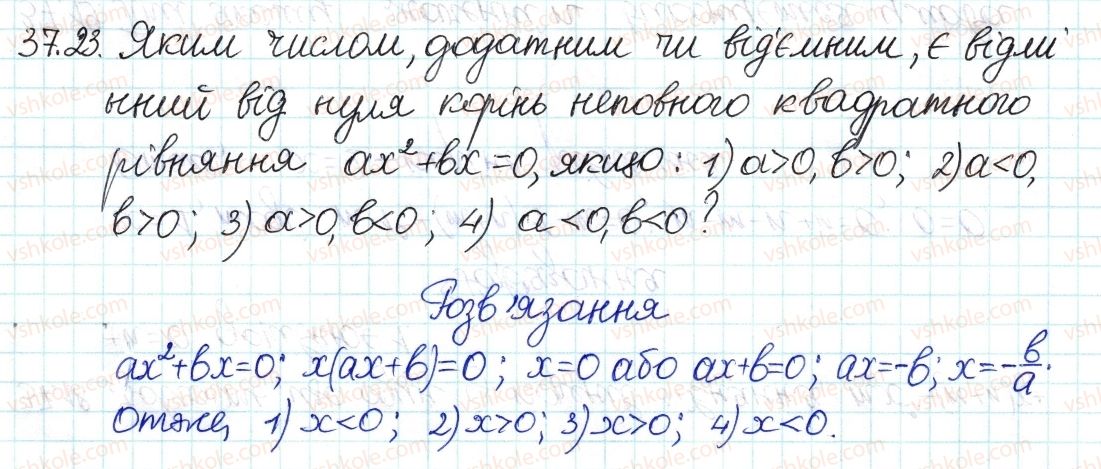 37.23. Яким числом, додатним чи від'ємним, є відмі
нний від нуля корінь неповного квадратного
рівняння ax²+bx=0, якщо: 1) a>0, b>0; 2) a<0,
b>0; 3) a>0, b<0; 4) a<0, b<0?
Розв'язання
ax²+bx=0; x(ax+b)=0; x=0 або ax+b=0; ax=-b; x=-b/a.
Отже, 1) x<0; 2) x>0; 3) x>0; 4) x<0.